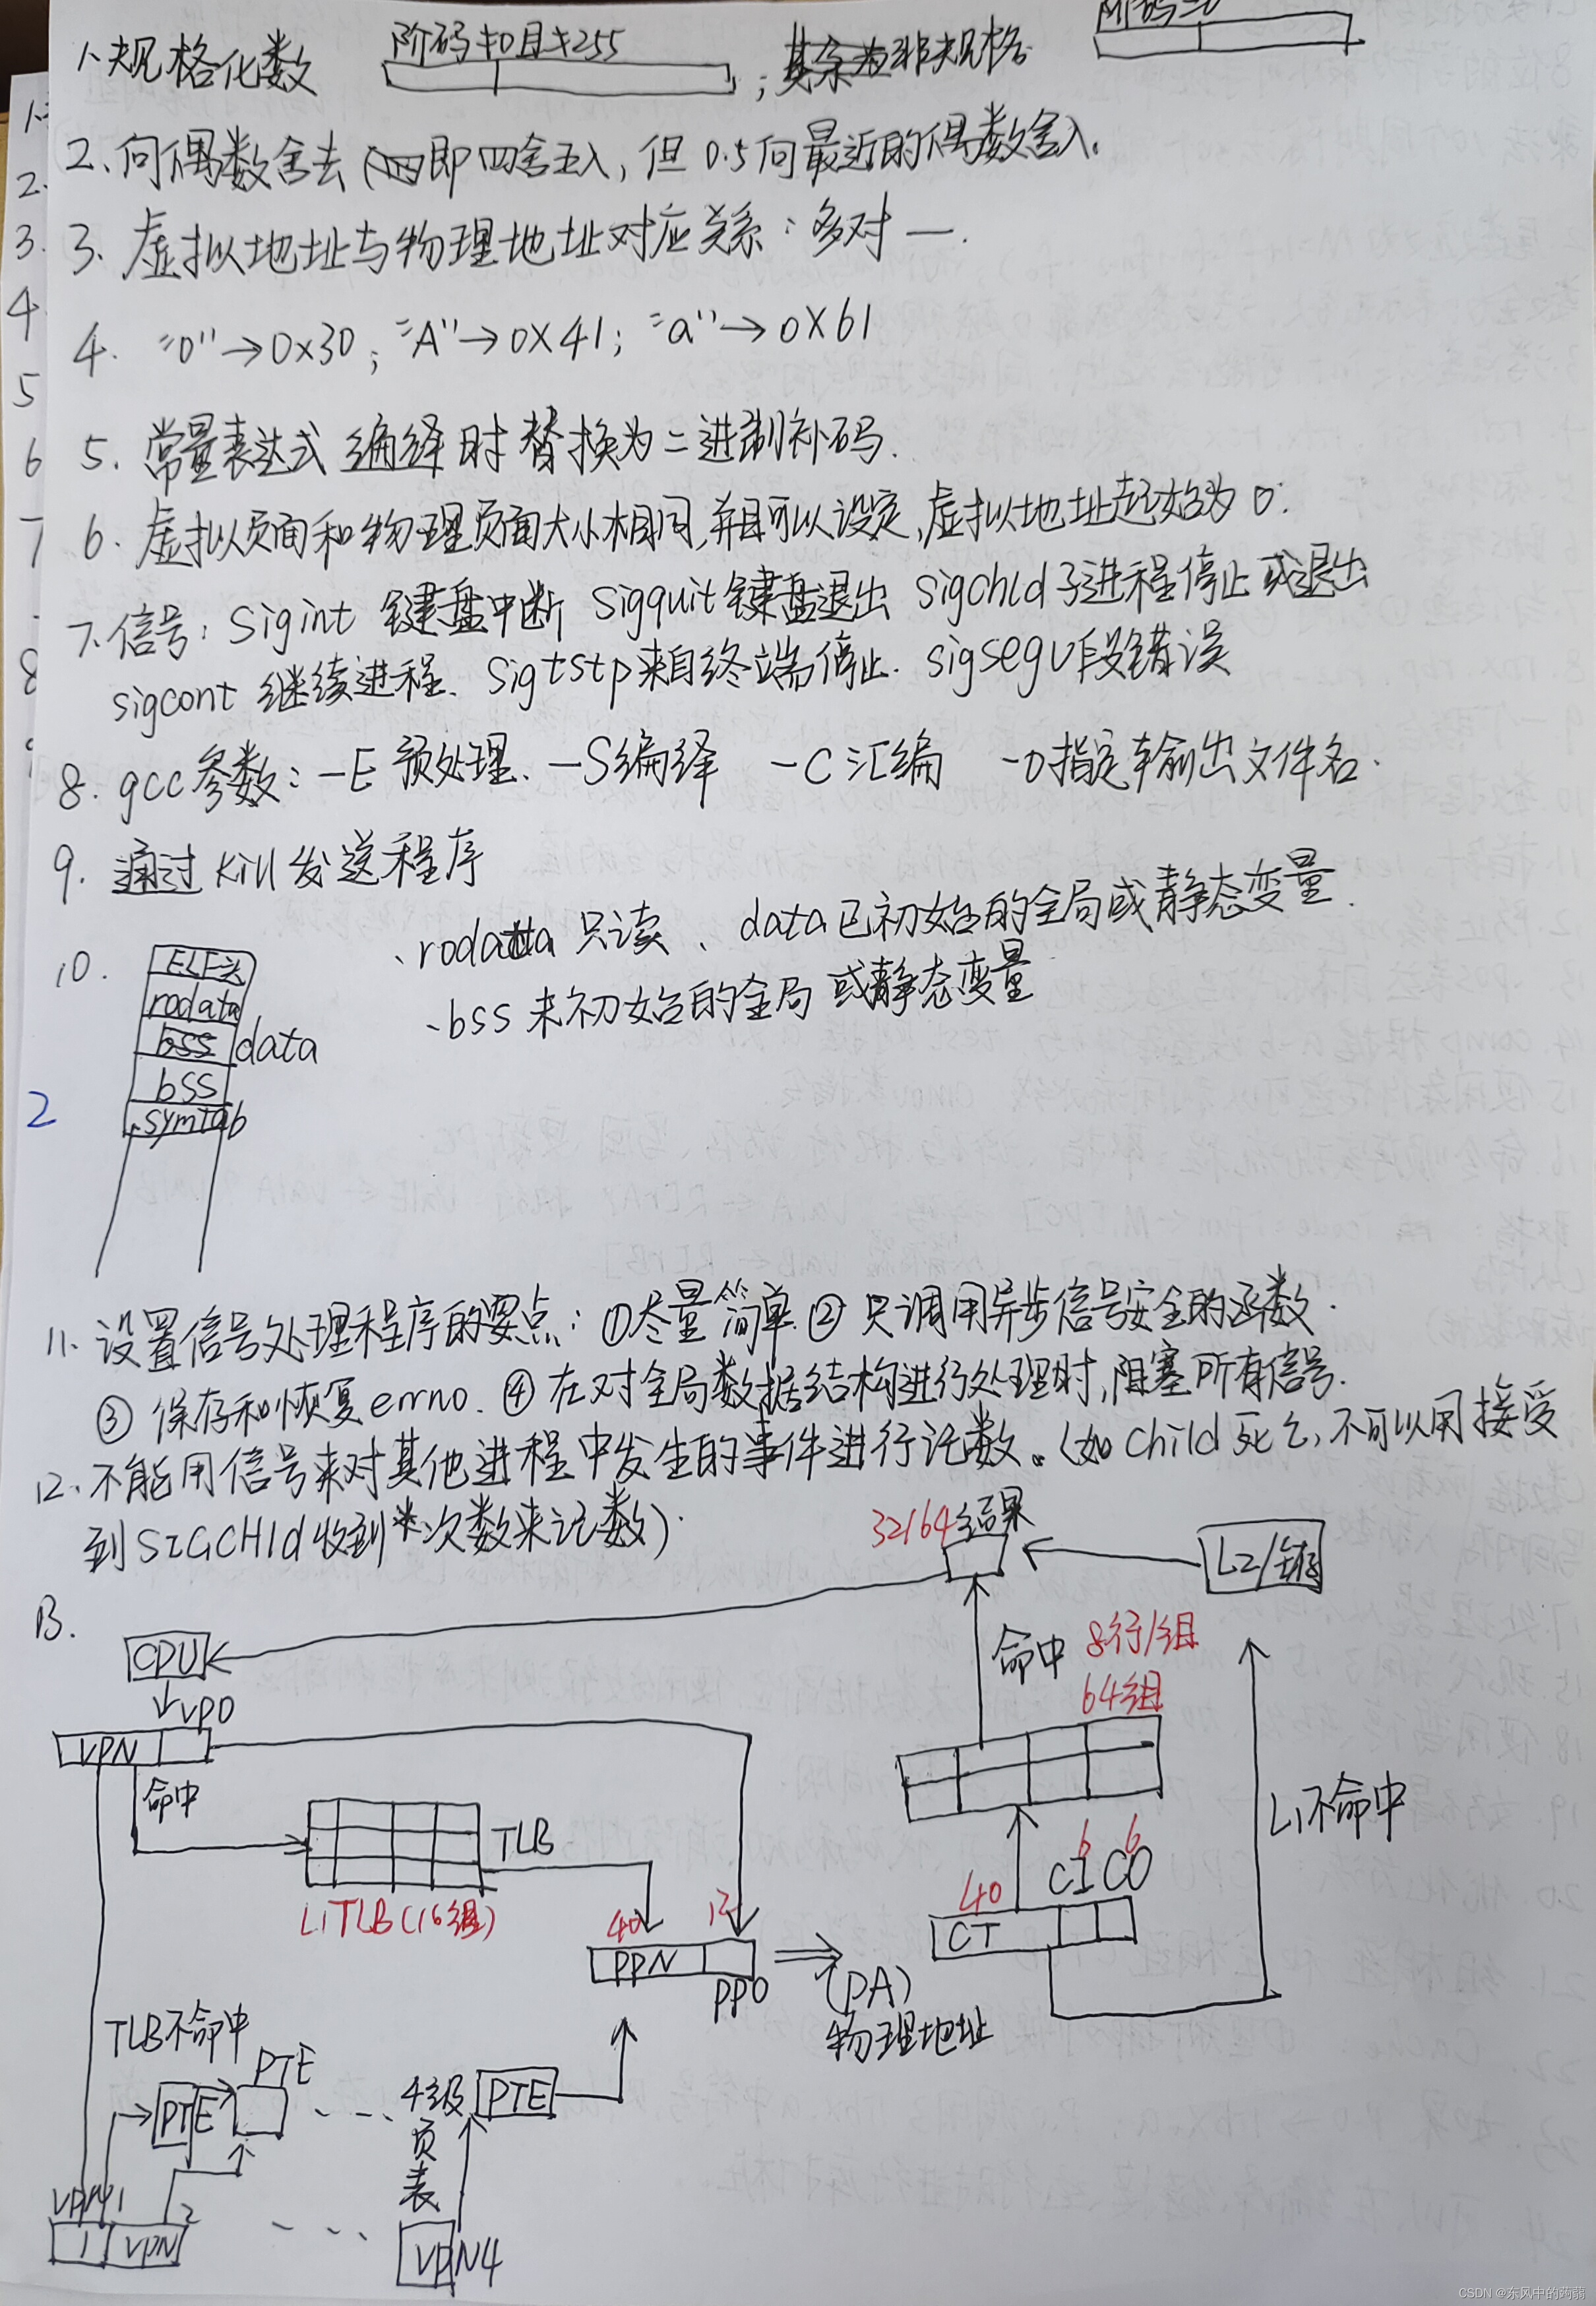 阶码≠0且≠255
阶码=0
1. 规格化数 ; 其余为非规格.
2. 向偶数舍去（即四舍五入, 但 0.5向最近的偶数舍入.
3. 虚拟地址与物理地址对应关系: 多对一.
4. "0"→0x30; "A"→0X41; "a"→0X61
5. 常量表达式 编译时替换为二进制补码.
6. 虚拟页面和物理页面大小相同,并且可以设定,虚拟地址起始为0.
7. 信号: Sigint 键盘中断 Sigquit键盘退出 Sigchld子进程停止或退出
sigcont 继续进程. Sigtstp来自终端停止. sigsegv段错误
8. gcc参数: -E 预处理. -S编译 -C汇编 -o指定输出文件名.
9. 通过kill发送程序
10.
.rodata 只读 、data已初始的全局或静态变量.
.bss未初始的全局或静态变量
ELF头
rodata
bss data
bss
.symtab
2
11. 设置信号处理程序的要点: ①尽量简单.② 只调用异步信号安全的函数.
③ 保存和恢复errno. ④在对全局数据结构进行处理时,阻塞所有信号.
12. 不能用信号来对其他进程中发生的事件进行记数。(如child死亡,不可以用接受
到SIGCHld收到次数来记数).
13.
32/64 结果
L2/主存
CPU
VPO
VPN
命中
命中 8行/组
64组
L1不命中
TLB
L1TLB(16组)
40 12
PPN
PPO
(PA)
物理地址
40
6 6
CI CO
CT
TLB不命中
PTE
PTE
4级
页
表
PTE
VPN1
1 VPN 2
VPN4
1.
2.
3.
4
5
6
7
8
CSDN @东风中的蒟蒻